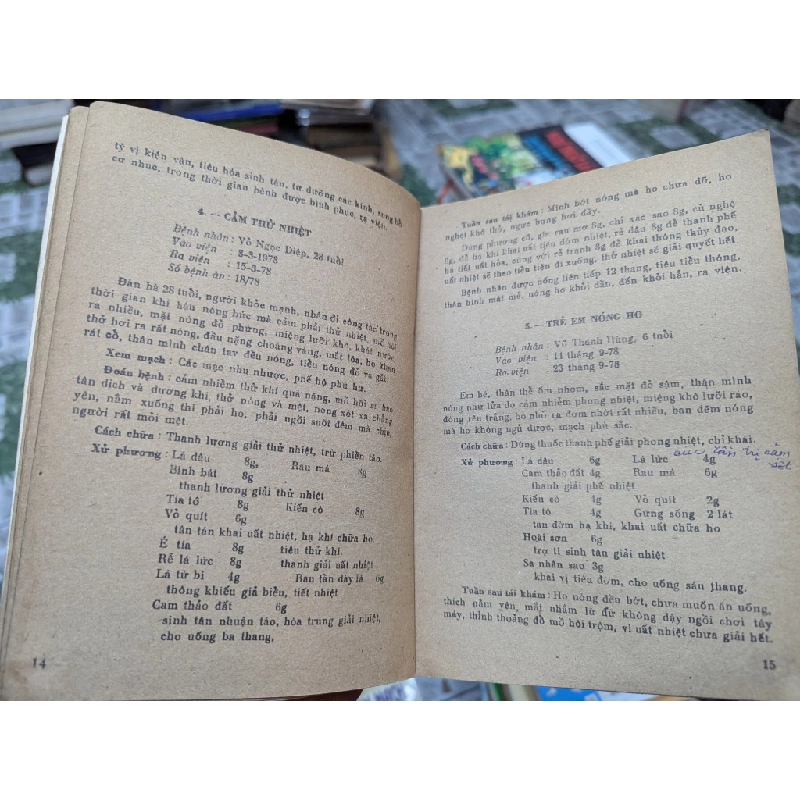 tỳ vị kiện vận, tiêu hóa sinh tân, tư dưỡng các kinh, sung bồi
cơ nhục, trong thời gian bệnh được bình phục, ra viện.
4. — CẢM THỬ NHIỆT
Bệnh nhân : Võ Ngọc Diệp, 28 tuổi
Vào viện : 8-3-1978
Ra viện : 15-3-78
Số bệnh án : 18/78
Đàn bà 28 tuổi, người khỏe mạnh, nhân đi công tác trong
thời gian khí hậu nóng bức mà cảm phải thử nhiệt, mồ hôi
ra nhiều, mặt nóng đỏ phừng, miệng lưỡi khô, khát nước,
thở hơi ra rất nóng, đầu nặng choáng váng, mắt tóa, ho khan
rát cổ, thân mình chân tay đều nóng, tiểu nóng đỏ ra gắt.
Xem mạch : Các mạch nhu nhược, phế hộ phù hư.
Đoán bệnh : cảm nhiễm thử khí quá nặng, mồ hôi ra hao
tân dịch và dương khí, thở nóng và mệt, nóng sốt xã chẳng
yên, nằm xuống thì phải ho, phải ngồi suốt đêm mà chịu,
người rất mỏi mệt.
Cách chữa : Thanh lương giải thử nhiệt, trừ phiền táo.
Xử phương : Lá dâu 8g, Rau má 8g
Bình bát 8g
thanh lương giải thử nhiệt
Tía tô 8g Kiến cò 8g
Vỏ quít 6g
tân tán khai uất nhiệt, hạ khí chữa ho
É tía 8g tiêu thử khí.
Rễ lá lức 8g thanh giải uất nhiệt
Lá từ bi 4g Ran tần dày lá 6g
thông khiếu giả biểu, tiết nhiệt
Cam thảo đất 6g
sinh tân nhuận táo, hòa trung giải nhiệt,
cho uống ba thang.
14
Tuần sau tái khám : Mình bớt nóng mà ho chưa đỡ, ho
nghẹt khó thở, ngực bụng hơi đầy.
Dùng phương cũ, gia rau mơ 8g, chỉ xác sao 8g, củ nghệ
8g, để hạ khí khai uất tiêu đờm nhiệt, rễ dâu 8g để thanh phế
hạ tiết uất hỏa, cùng với rễ tranh 8g để khai thông thủy đạo,
uất nhiệt sẽ theo tiểu tiện đi xuống, thử nhiệt sẽ giải quyết hết.
Bệnh nhân được uống liên tiếp 12 thang, tiêu tiểu thông,
thân bình mát mẻ, nóng ho khỏi dần, đến khỏi hẳn, ra viện.
5. — TRẺ EM NÓNG HO
Bệnh nhân : Võ Thanh Hùng, 6 tuổi
Vào viện : 11 tháng 9-78
Ra viện : 23 tháng 9-78
Em bé, thân thể ốm nhom, sắc mặt đỏ sậm, thân mình
nóng như lửa do cảm nhiễm phong nhiệt, miệng khô lưỡi ráo,
đóng rêu trắng, ho nhổ ra đờm nhớt rất nhiều, ban đêm nóng
mà ho không ngủ được, mạch phù sác.
Cách chữa : Dùng thuốc thanh phế giải phong nhiệt, chỉ khái.
Xử phương : Lá dâu 6g Lá lức 4g
Cam thảo đất 4g Rau má 6g
thanh giải phế nhiệt
Kiến cò 4g Vỏ quít 2g
Tía tô 4g Gừng sống 2 lát
tan đờm hạ khí, khai uất chữa ho
Hoài sơn 6g
trợ tì sinh tân giải nhiệt
Sa nhân sao 3g
khai vị tiêu đờm, cho uống sáu thang.
Tuần sau tái khám : Ho nóng đều bớt, chưa muốn ăn uống,
thích nằm yên, mắt nhắm lừ đừ không dậy ngồi chơi táy
máy, thỉnh thoảng đổ mồ hôi trộm, vì uất nhiệt chưa giải hết.
15